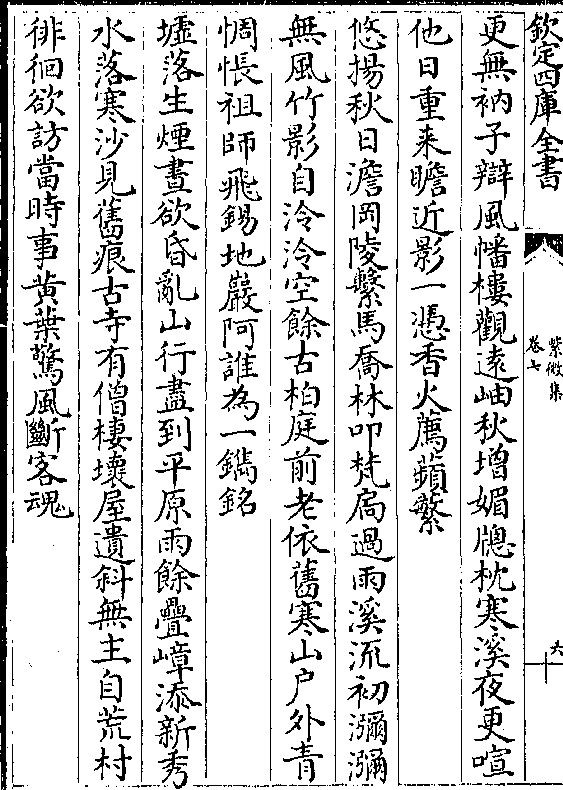 欽定四庫全書
紫微集
卷七
六
更無衲子辯風幡樓觀遠岫秋增媚牕枕寒溪夜更喧
他日重来瞻近影一憑香火薦蘋蘩
悠揚秋日澹岡陵繫馬喬林叩梵扃過雨溪流初瀰瀰
無風竹影自泠泠空餘古柏庭前老依舊寒山户外青
惆悵祖師飛錫地巖阿誰為一鐫銘
墟落生煙晝欲昏亂山行盡到平原雨餘疊嶂添新秀
水落寒沙見舊痕古寺有僧棲壊屋遺斜無主自荒村
徘徊欲訪當時事黄葉驚風斷客魂